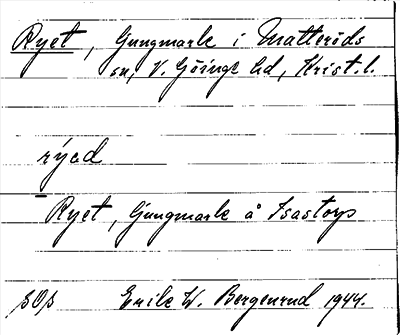 Ryet, Ljungmark i Matteröds
sn, V. Göinge hd, Krist. l.
rýed
Ryet, Ljungmark å Isastorp
SOS Erik W. Bergenrud 1944.